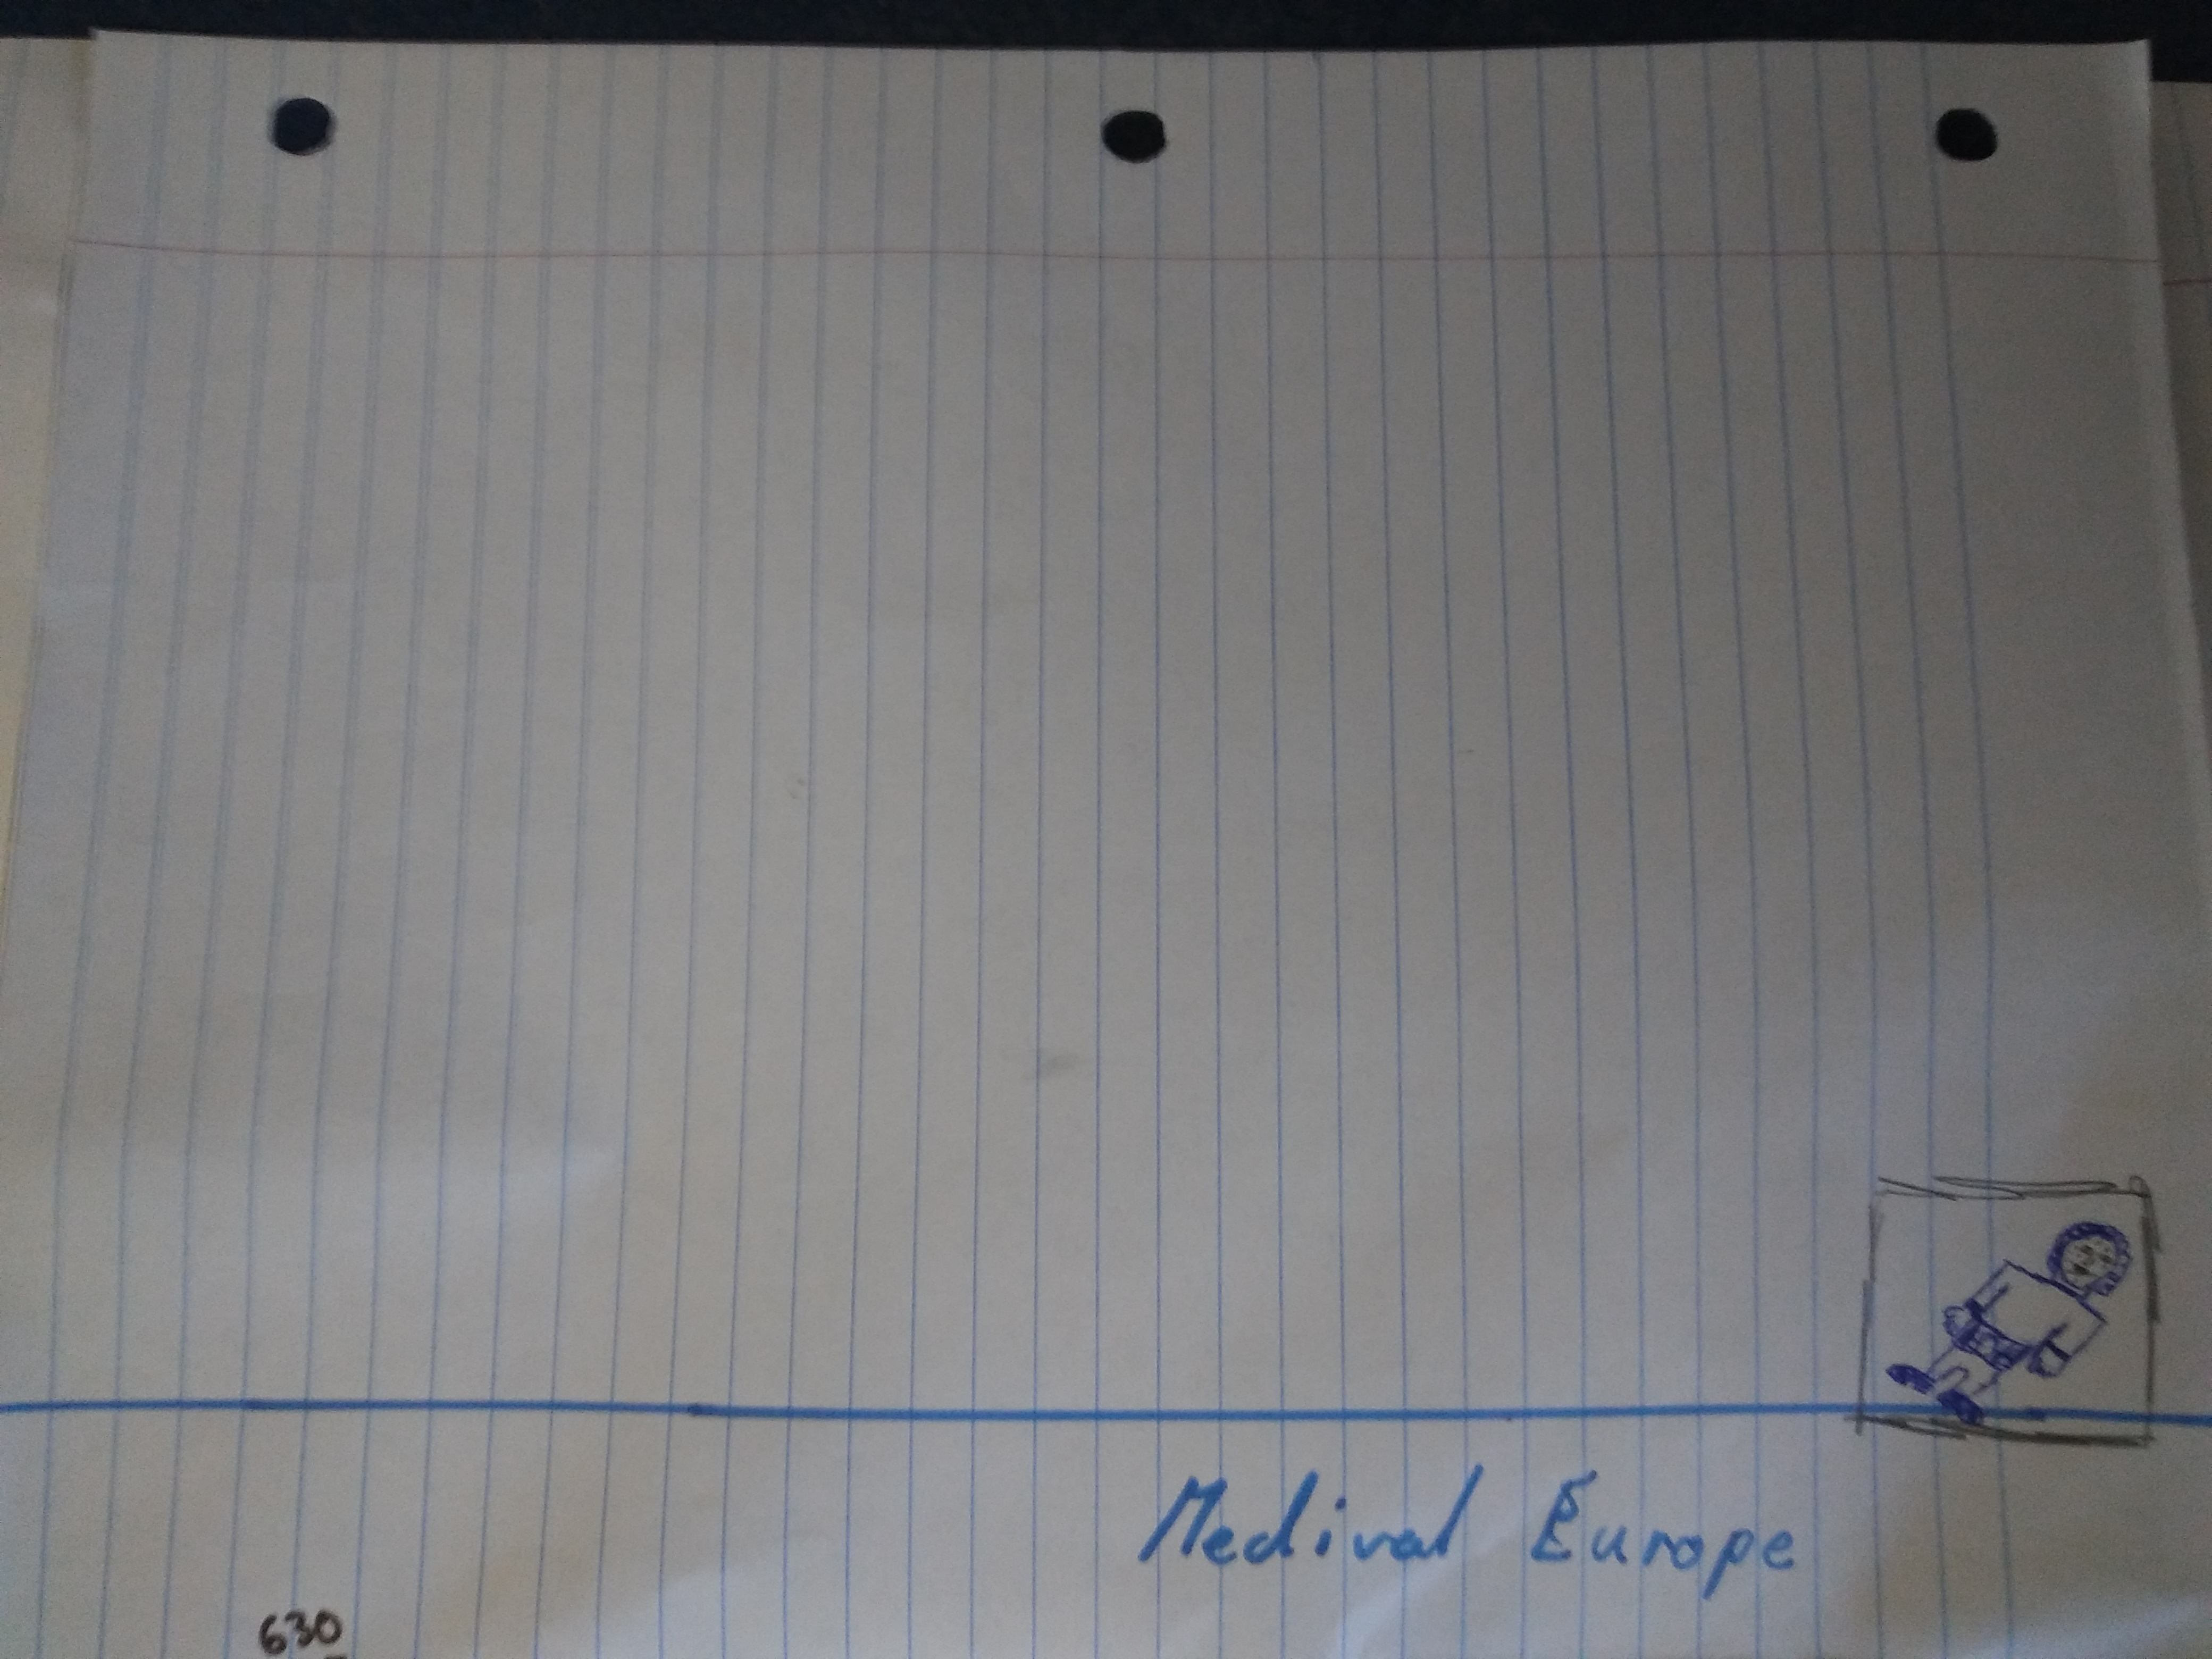 Medival Europe
630